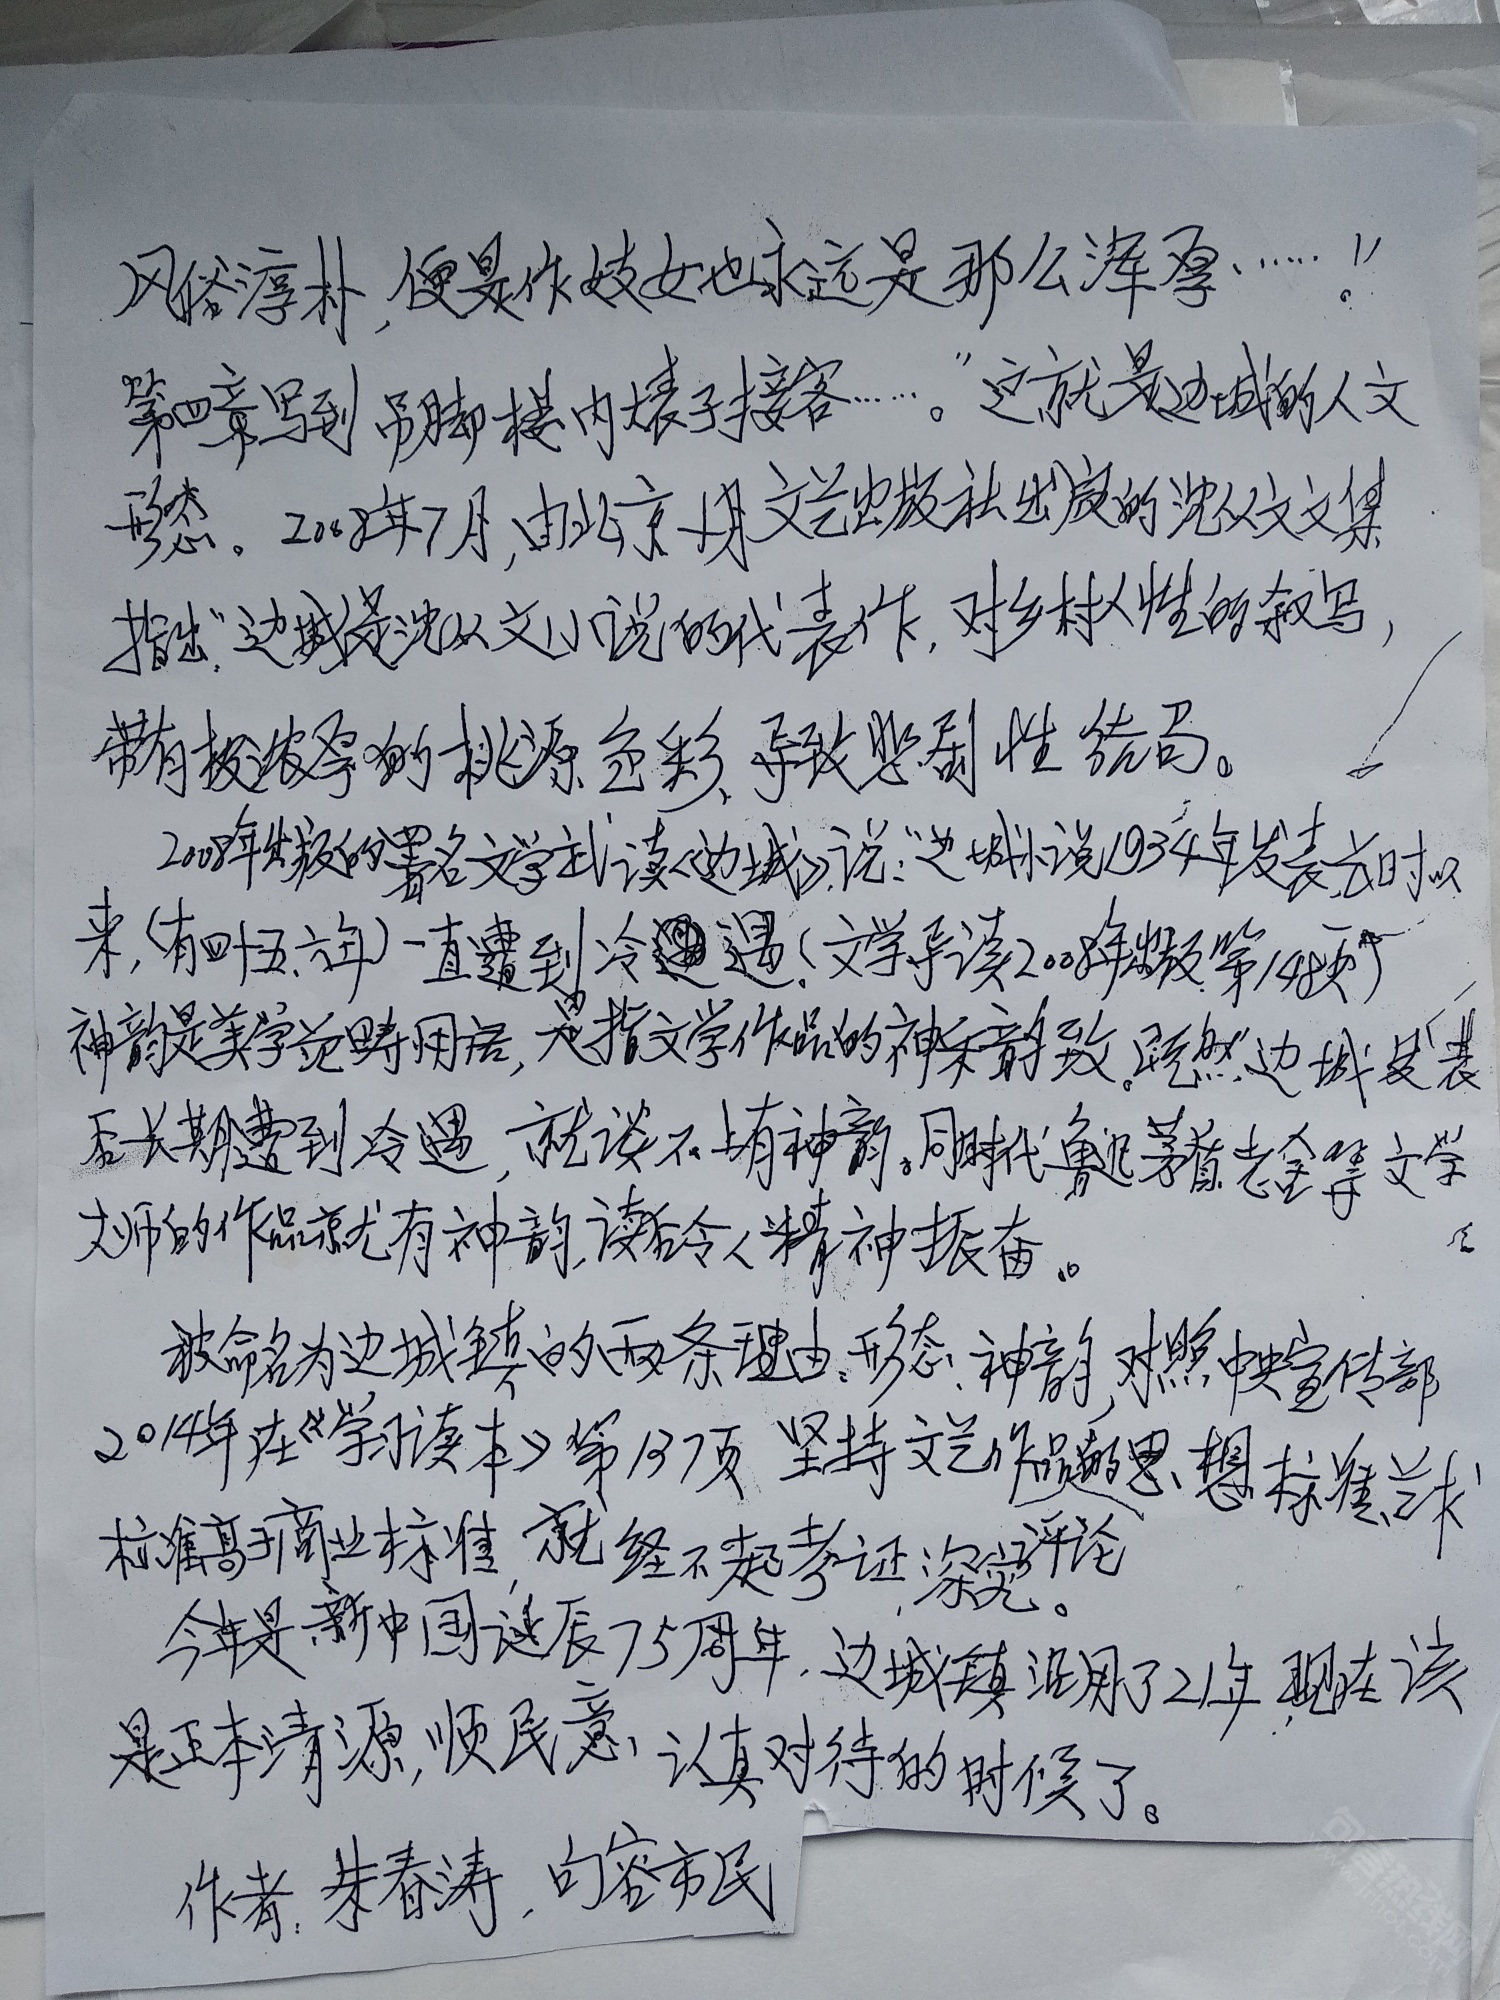 风俗淳朴，便是作妓女也永远是那么浑厚……！。"
第四章写到吊脚楼内婊子接客……。"这就是边城的人文
形态。2008年7月，由北京十月文艺出版社出版的沈从文文集
指出"边城是沈从文小说的代表作，对乡村人性的叙写，
带有极浓厚的桃源色彩，导致悲剧性结局。
2008年出版的署名文学 读《边城》，说："边城小说1934年发表 时以
来，（有四十五、六年）一直遭到冷遇。（文学导读2008年出版第148页）
神韵是美学范畴用语，是指文学作品的神采韵致。既然边城发表
后长期遭到冷遇，就谈不上有神韵。同时代鲁迅茅盾老舍等文学
大师的作品就尤有神韵，读后令人精神振奋。
被命名为边城镇的两条理由：形态、神韵，对照中央宣传部
2014年在《学习读本》第137页 坚持文艺作品的思想标准、艺术
标准高于商业标准，就经不起考证，深究评论。
今年是新中国诞辰75周年，边城镇沿用了21年，现在该
是正本清源，顺民意，认真对待的时候了。
作者：朱春涛，句容市民
句容热线网